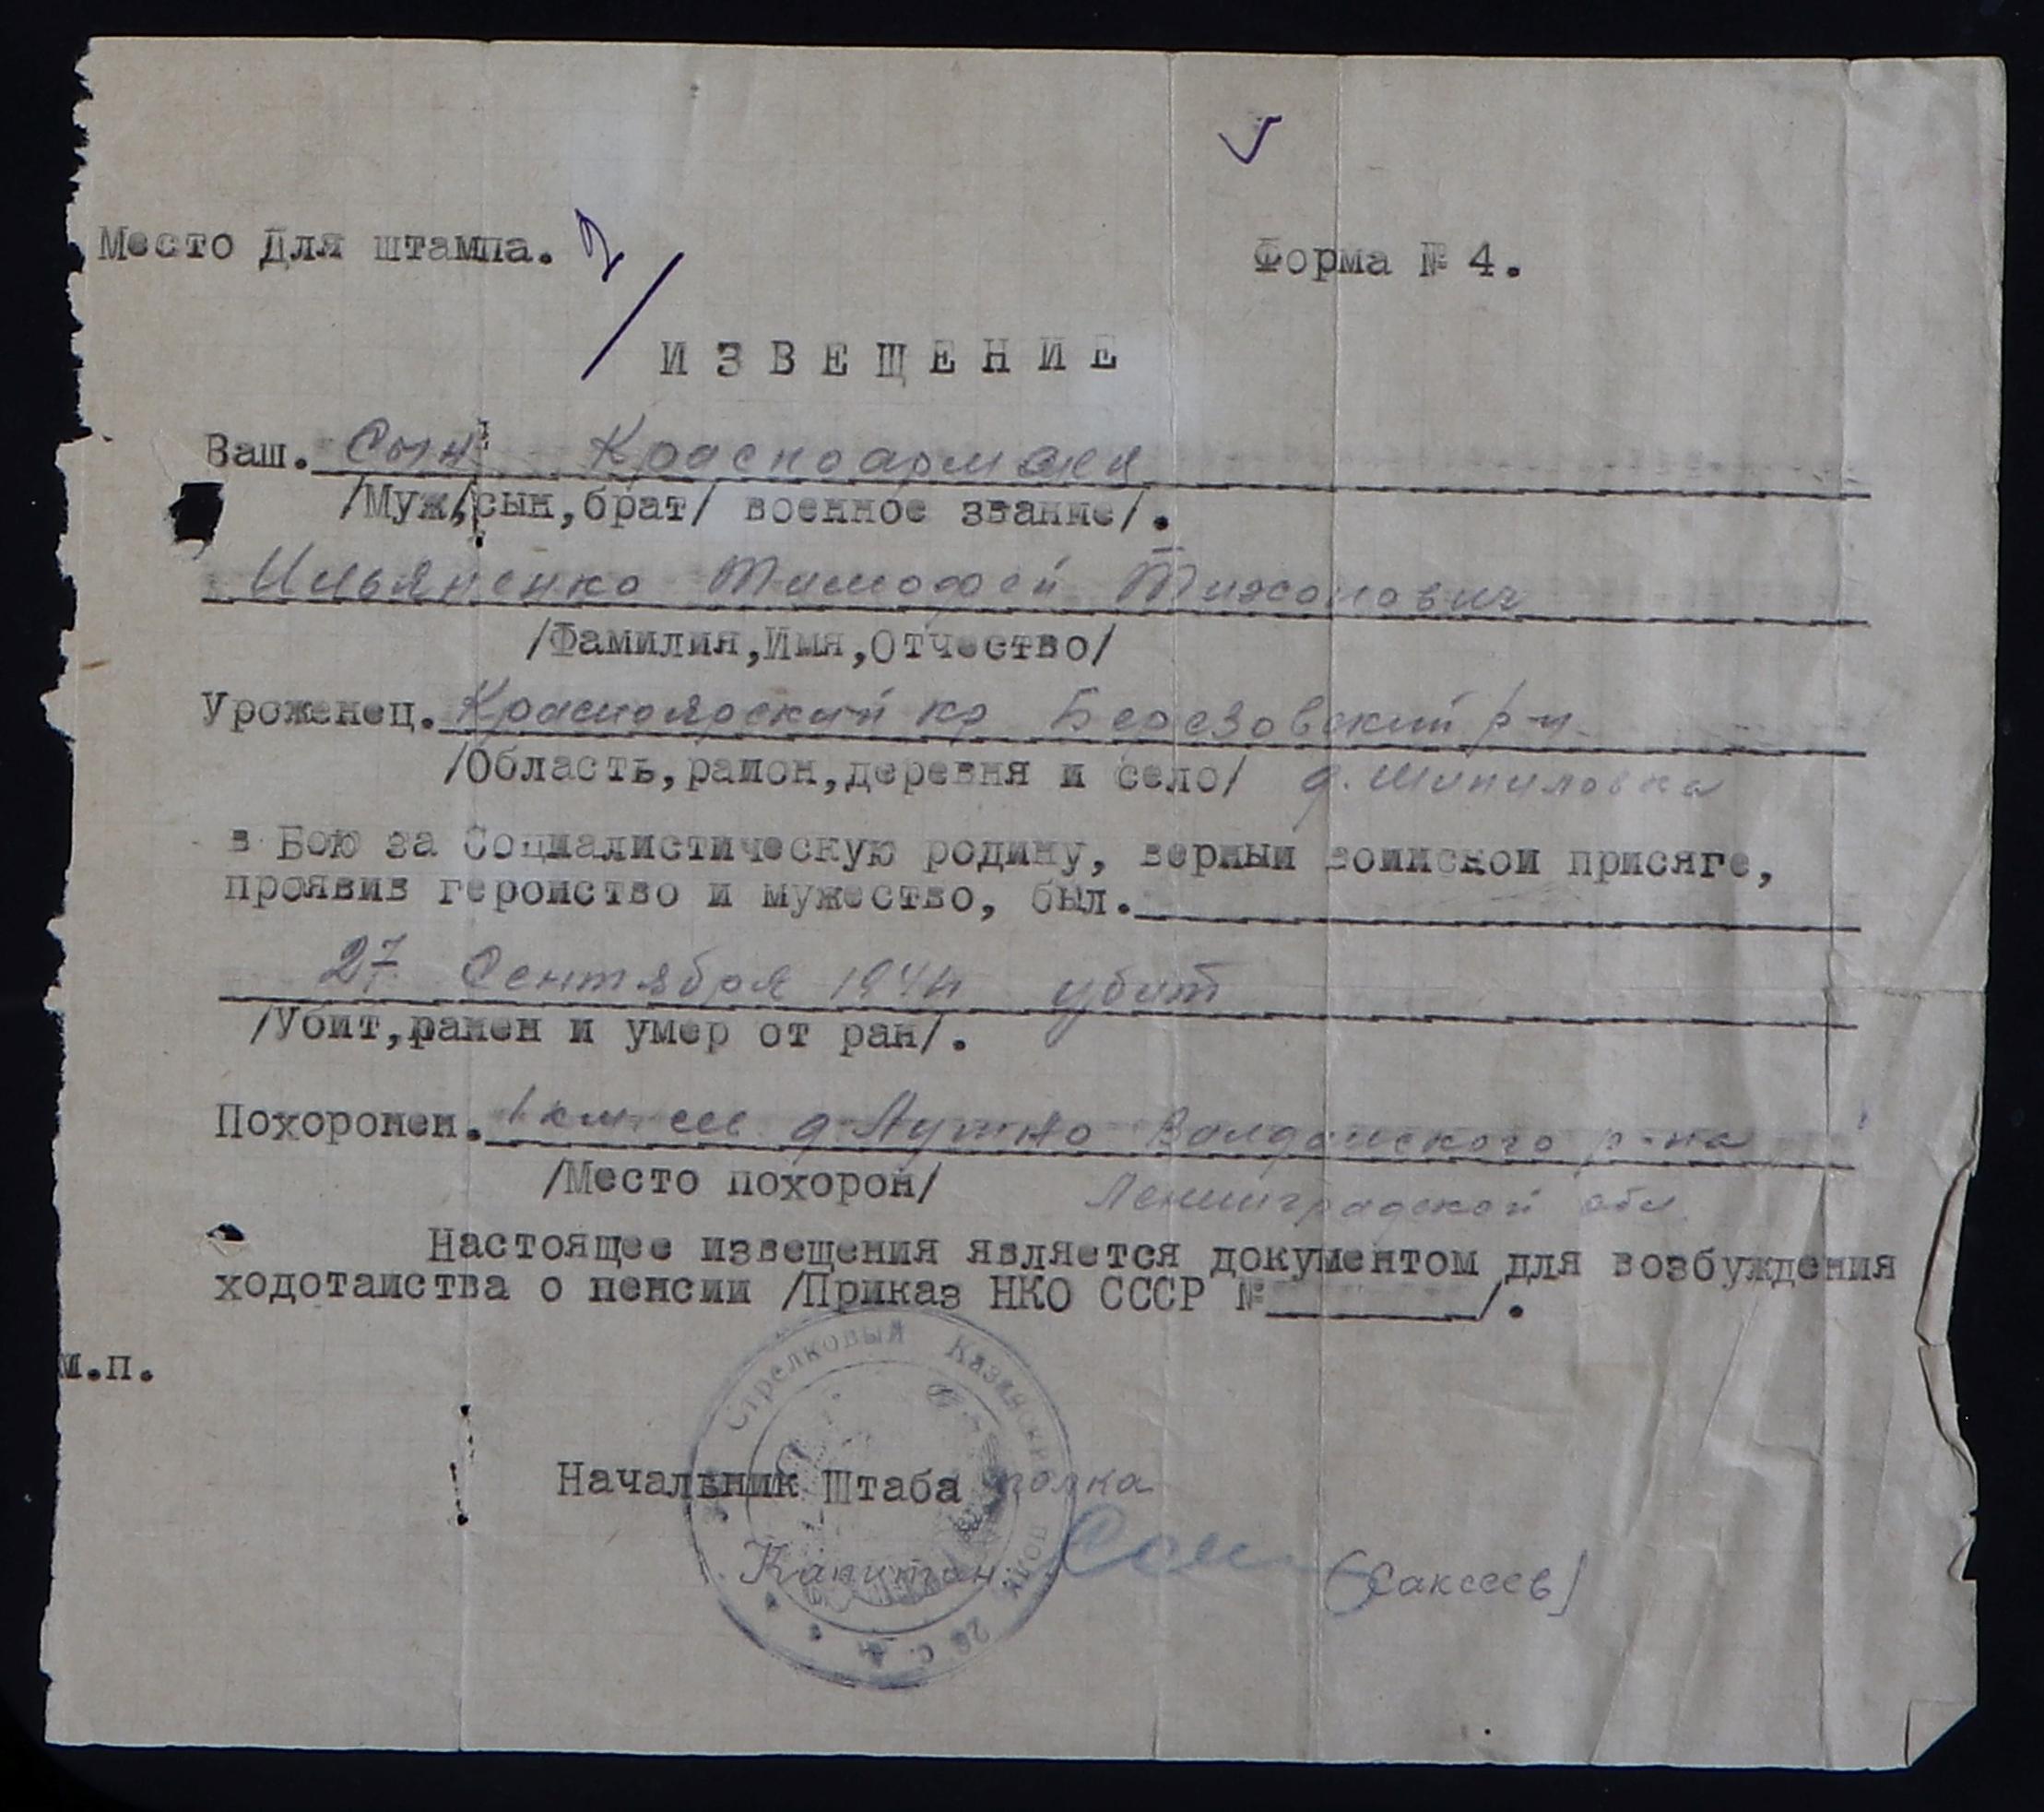 Место Для штампа.
Форма № 4.
ИЗВЕЩЕНИЕ
Ваш. Сын Красноармеец
/Муж, сын, брат/ военное звание/.
Ильяненко Тимофей Тихонович
/Фамилия, Имя, Отчество/
Уроженец. Красноярский кр Березовский р-н
/Область, раион, деревня и село/ д. Шипиловка
в Бою за Социалистическую родину, верныи воинскои присяге,
проявив героиство и мужество, был.
27 Сентября 194 убит
/Убит, ранен и умер от ран/.
Похоронен. 1 км. сев. д. Валдайского р-на
/Место похорон/ Ленинградской обл.
Настоящее извещения является документом для возбуждения
ходотаиства о пенсии /Приказ НКО СССР №        /.
м.п.
Стрелковый Казанский полк 26 с. д.
Начальник Штаба полка
Капитан